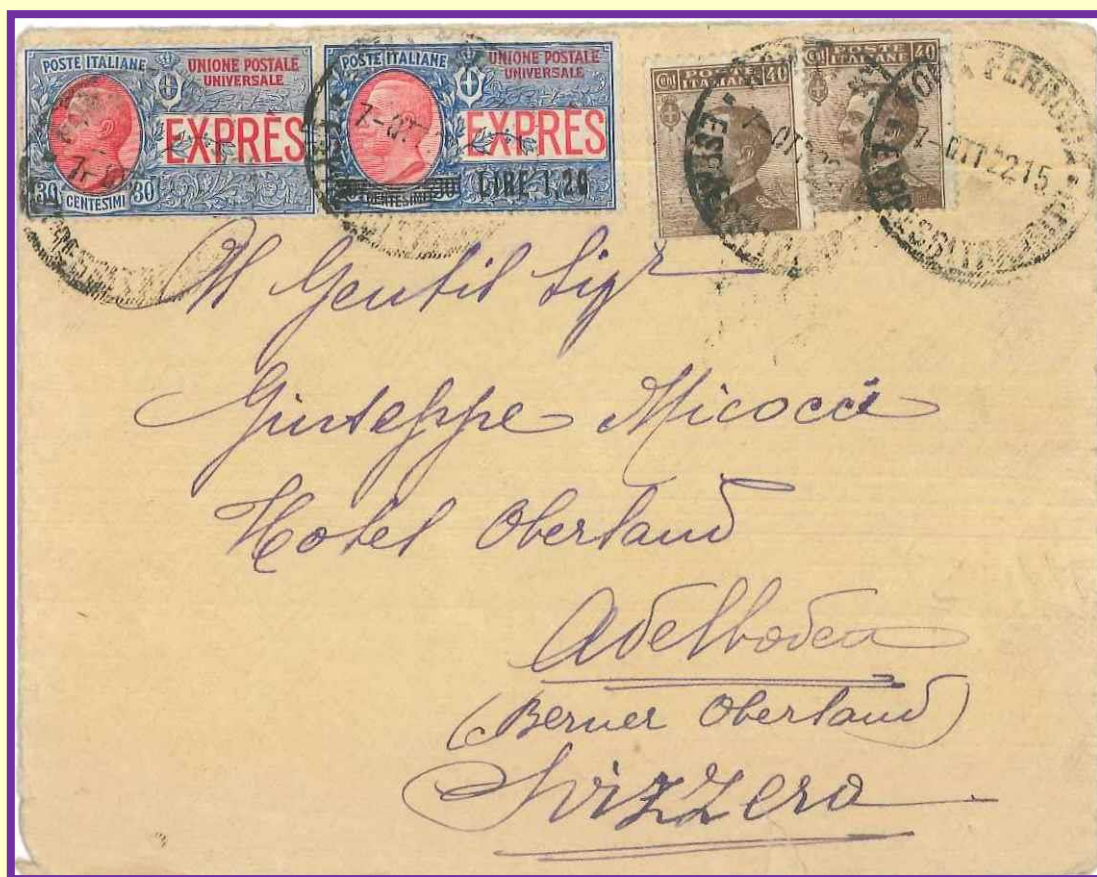 POSTE ITALIANE
UNIONE POSTALE
UNIVERSALE
EXPRÈS
30 CENTESIMI 30
POSTE ITALIANE
UNIONE POSTALE
UNIVERSALE
EXPRÈS
LIRE 1,20
CENTESIMI
POSTE
ITALIANE
40
POSTE
ITALIANE
40
7-OTT 22 15
Al Gentil Sigr
Giuseppe Micocci
Hotel Oberland
Adelboden
(Berner Oberland)
Svizzera